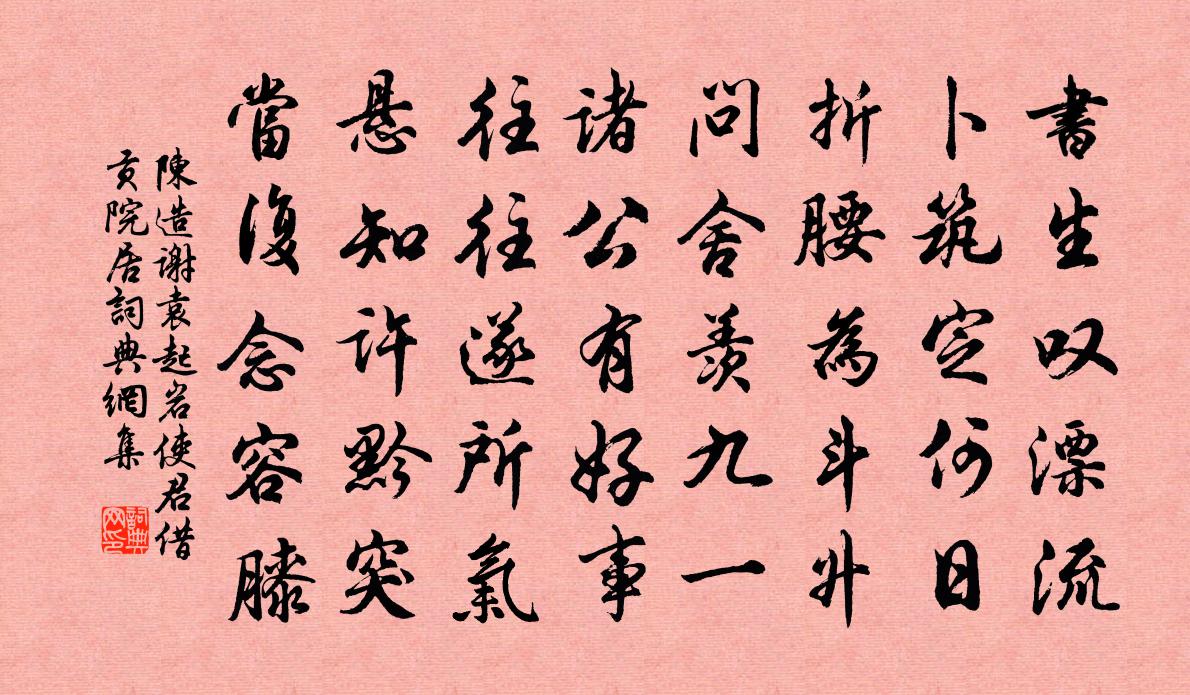 書生叹漂流
卜筑定何日
折腰為斗升
问舍羡九一
诸公有好事
往往遂所氣
悬知许黔突
當復念容膝
陳造谢袁起岩使君借
贡院居詞典網集
詞典网印